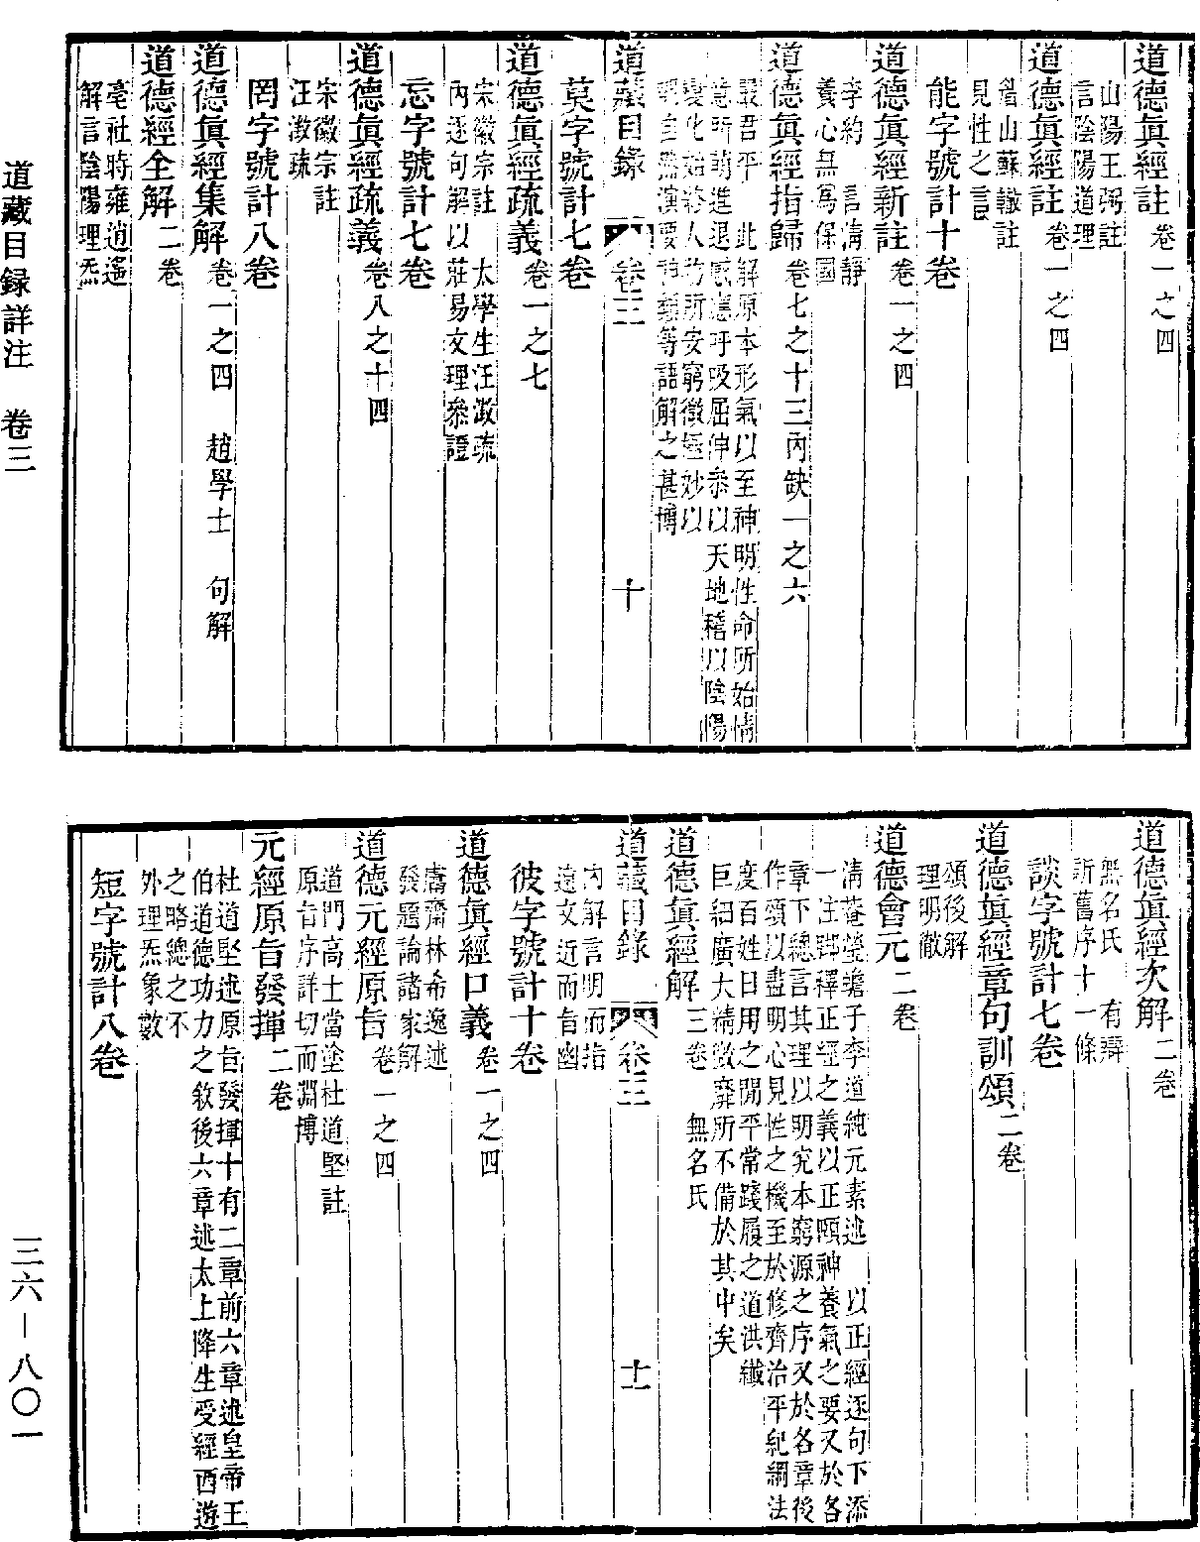 道德眞經註卷一之四
山陽王弼註
言陰陽道理
道德眞經註卷一之四
眉山蘇轍註
見性之言
能字號計十卷
道德眞經新註卷一之四
李約　言淸靜
養心無爲保國
道德眞經指歸卷七之十三內缺一之六
嚴君平　此解原本形氣以至神明性命所始情
意所萌進退感應呼吸屈伸叅以天地稽以陰陽
變化始終人物所安窮微極妙以
明自然演要神類等語解之甚博
道藏目錄　卷三　十
莫字號計七卷
道德眞經疏義卷一之七
宋徽宗註　太學生江澂疏
內逐句解以莊易文理叅證
忘字號計七卷
道德眞經疏義卷八之十四
宋徽宗註
江澂疏
罔字號計八卷
道德眞經集解卷一之四　趙學士　句解
道德經全解二卷
亳社時雍逍遙
解言陰陽理炁
道德眞經次解二卷
無名氏　有辯
新舊序十一條
談字號計七卷
道德眞經章句訓頌二卷
頌後解
理明徹
道德會元二卷
淸菴瑩蟾子李道純元素述　以正經逐句下添
一注脚釋正經之義以正頤神養氣之要又於各
章下總言其理以明究本窮源之序又於各章後
作頌以盡明心見性之機至於修齊治平紀綱法
度百姓日用之閒平常踐履之道洪纖
巨細廣大精微靡所不備於其中矣
道德眞經解三卷　無名氏
內解言明而指
遠文近而旨幽
道藏目錄　卷三　十一
彼字號計十卷
道德眞經口義卷一之四
鬳齋林希逸述
發題論諸家解
道德元經原旨卷一之四
道門高士當塗杜道堅註
原旨序詳切而淵博
元經原旨發揮二卷
杜道堅述原旨發揮十有二章前六章述皇帝王
伯道德功力之敘後六章述太上降生受經西遊
之略總之不
外理炁象數
短字號計八卷
道藏目錄詳注　卷三
三六—八〇一